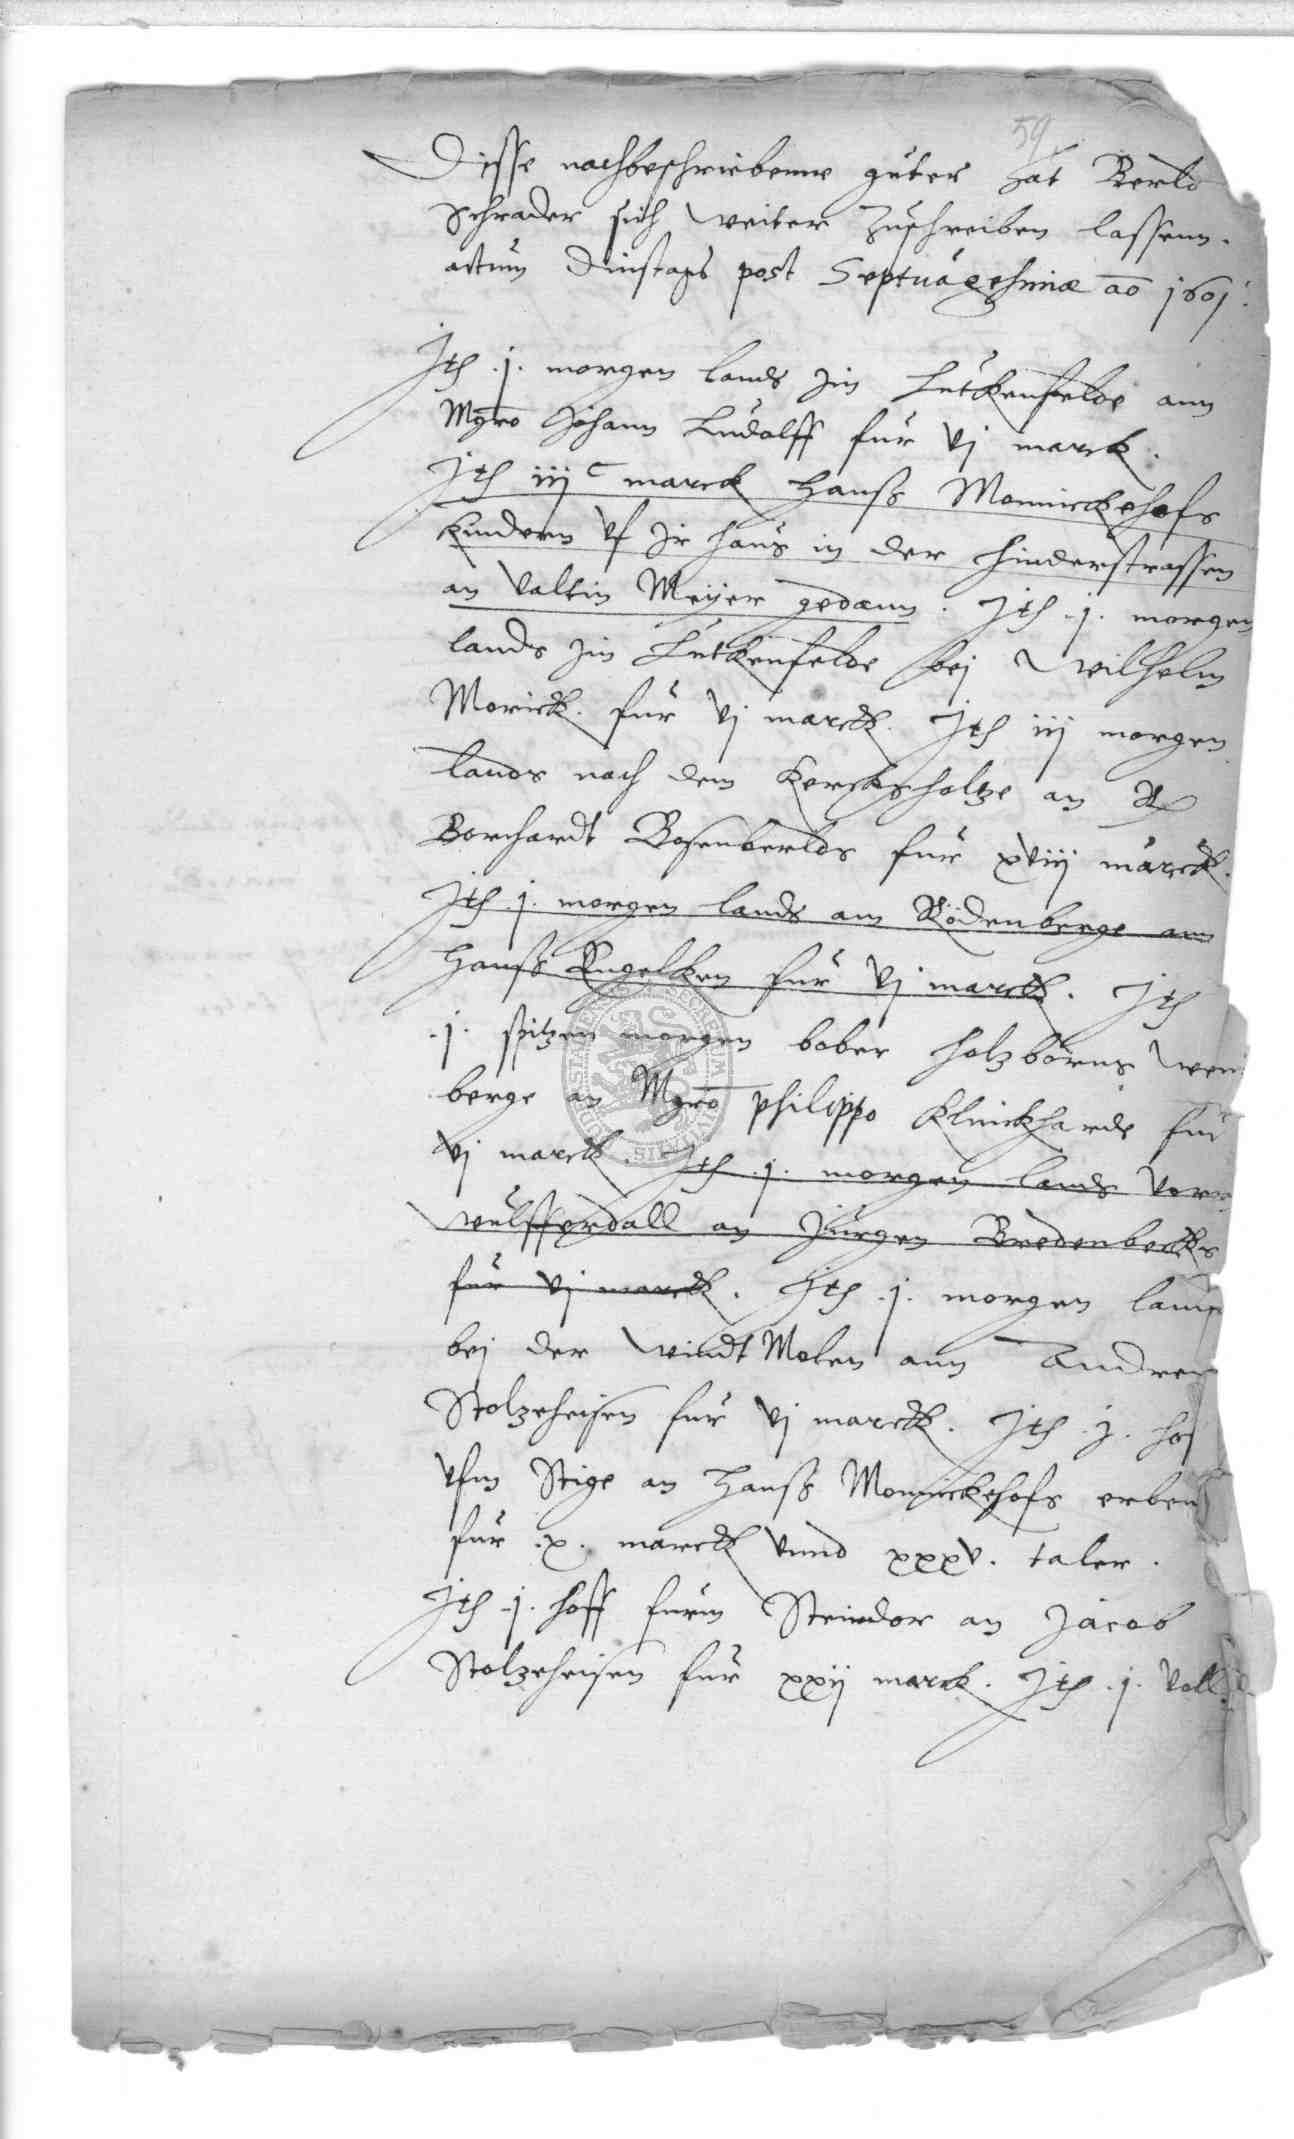 59
Disse nachbeschriebenne guter hat Berld
Schrader sich weiter zuschreiben lassenn.
actum Dinstags post Septuagesimæ ao 1601.
Ith .j. morgen lands im Lutkenfelde ann
Mgro Johann Ludolff fur vj marck.
Ith iijc marck Hanß Monnickehofs
kindern vf Ir haus in der hinderstrassen
an Valtin Meyer gedann. Ith .j. morgen
lands im Lutkenfelde bej Wilhelm
Morick. fur vj marck. Ith iij morgen
lands nach dem Kerckholtze an
Borchardt Bosenberlds fur xviij marck.
Ith .j. morgen lands am Rödenberge am
Hanß Engelken fur vj marck. Ith
.j. spitzen morgen bober holzborns wen
berge an Mgro philippo Klinckharde fur
vj marck. Ith .j. morgen lands vorm
wulfferdall an Jurgen Bredenbecks
fur vj marck. Ith .j. morgen lands
bej der windt Molen ann Andreas
Stolzeheisen fur vj marck. Ith .j. hof
vfm Stige an Hanß Monnickehofs erben
fur .x. marck vnnd xxxv. taler.
Ith .j. hoff furm Steindor an Jacob
Stolzeheisen fur xxij marck. Ith .j. voll